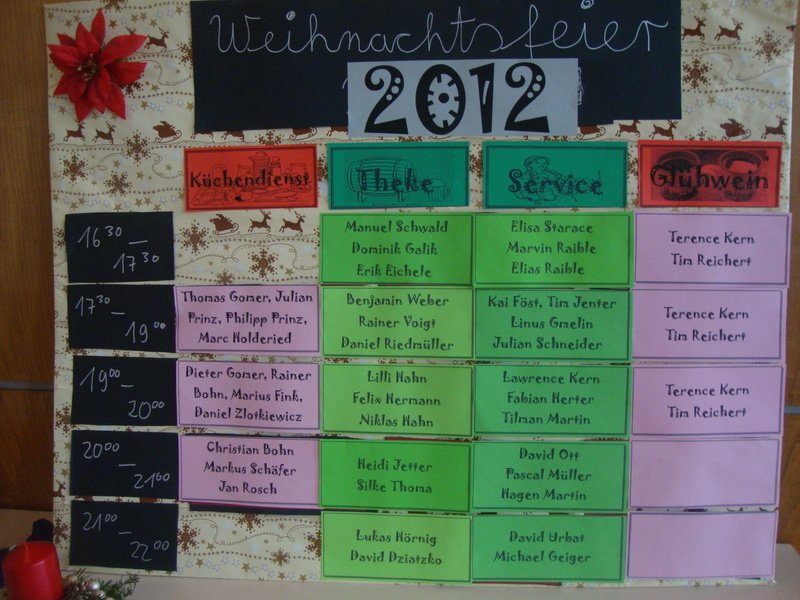 Weihnachtsfeier
2012
Küchendienst Theke Service Glühwein
16 30 — 17 30
Manuel Schwald
Dominik Galik
Erik Eichele
Elisa Starace
Marvin Raible
Elias Raible
Terence Kern
Tim Reichert
17 30 — 19 00
Thomas Gomer, Julian
Prinz, Philipp Prinz,
Marc Holderied
Benjamin Weber
Rainer Voigt
Daniel Riedmüller
Kai Föst, Tim Jenter
Linus Gmelin
Julian Schneider
Terence Kern
Tim Reichert
19 00 — 20 00
Dieter Gomer, Rainer
Bohn, Marius Fink,
Daniel Zlotkiewicz
Lilli Hahn
Felix Hermann
Niklas Hahn
Lawrence Kern
Fabian Herter
Tilman Martin
Terence Kern
Tim Reichert
20 00 — 21 00
Christian Bohn
Markus Schäfer
Jan Rosch
Heidi Jetter
Silke Thoma
David Ott
Pascal Müller
Hagen Martin
21 00 — 22 00
Lukas Hörnig
David Dziatzko
David Urbat
Michael Geiger